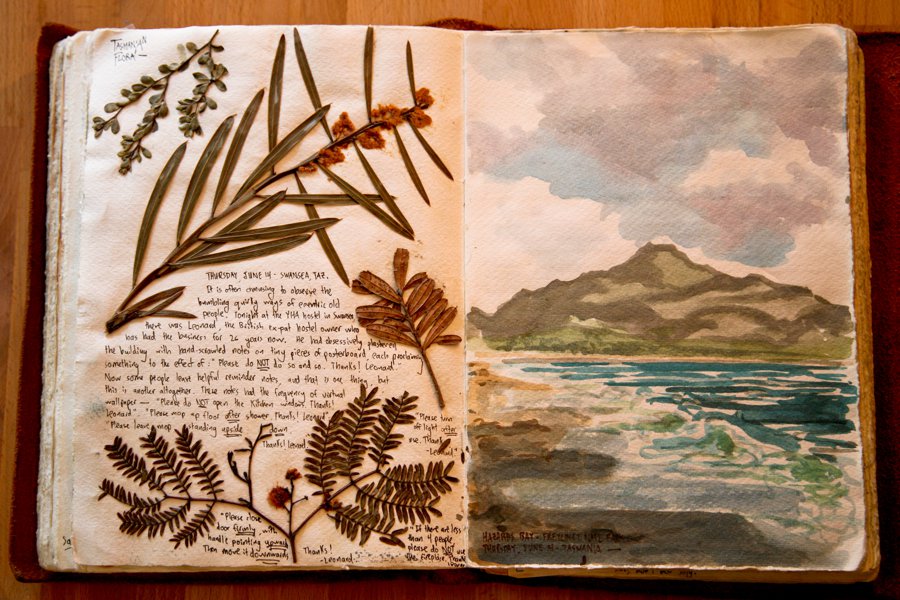 TASMANIAN
FLORA —
THURSDAY JUNE 14 - SWANSEA, TAZ.
It is often amusing to observe the
bumbling quirky ways of eccentric old
people. Tonight at the YHA hostel in Swansea
there was Leonard, the British ex-pat hostel owner who
has had the business for 26 years now. He had obsessively plastered
the building with hand-scrawled notes on tiny pieces of posterboard, each proclaiming
something to the effect of: "Please do NOT do so and so. Thanks! Leonard.
Now some people leave helpful reminder notes, and that is one thing, but
this is another altogether. These notes had the frequency of virtual
wallpaper — "Please do NOT open the kitchen window. Thanks!
Leonard". "Please mop up floor after shower. Thanks! Leonard"
"Please leave mop standing upside down.
Thanks! Leonard
"Please turn
off light after
use. Thanks
-Leonard"
"Please close
door firmly, with
handle pointing upwards
Then move it downwards
Thanks!
-Leonard.
"If there are less
than 4 people
please do NOT use
the fireplace. Thanks
HAZARDS BAY - FREYCINET NAT'L PARK
THURSDAY, JUNE 14 - TASMANIA —